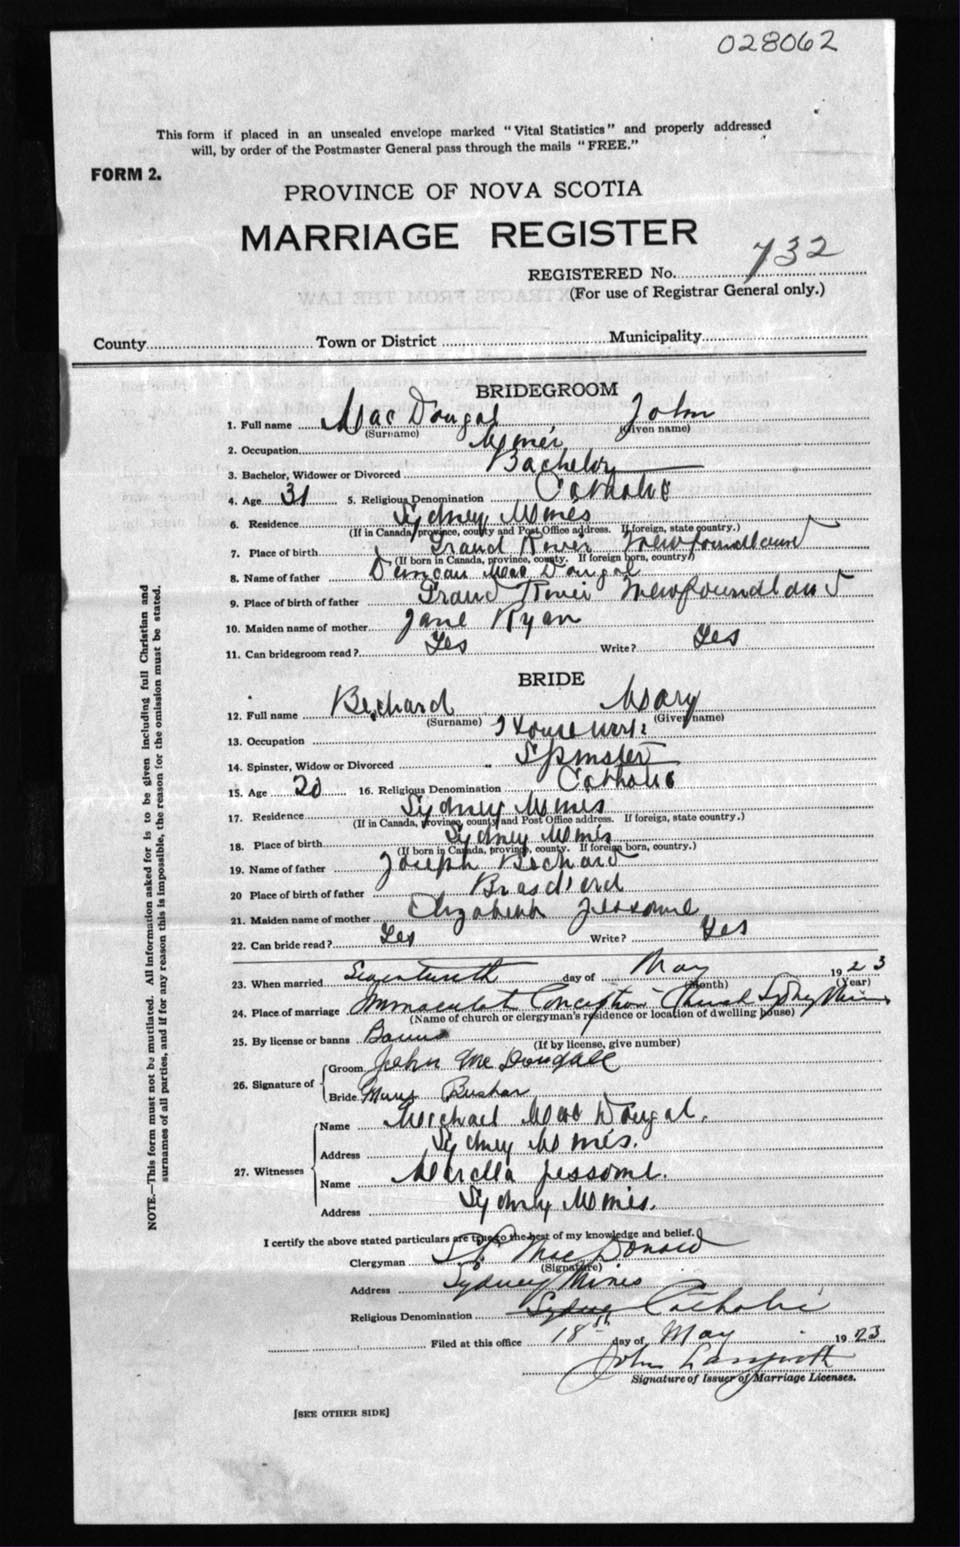 028062
This form if placed in an unsealed envelope marked "Vital Statistics" and properly addressed
will, by order of the Postmaster General pass through the mails "FREE."
FORM 2.
PROVINCE OF NOVA SCOTIA
MARRIAGE REGISTER
REGISTERED No. 732
(For use of Registrar General only.)
County Town or District Municipality
BRIDEGROOM
1. Full name MacDougal John
(Surname) (Given name)
2. Occupation Miner
3. Bachelor, Widower or Divorced Bachelor
4. Age 31 5. Religious Denomination Catholic
6. Residence Sydney Mines
(If in Canada, province, county and Post Office address. If foreign, state country.)
7. Place of birth Grand River Newfoundland
(If born in Canada, province, county. If foreign born, country.)
8. Name of father Duncan MacDougal
9. Place of birth of father Grand River Newfoundland
10. Maiden name of mother Jane Ryan
11. Can bridegroom read? Yes Write? Yes
BRIDE
12. Full name Bechard Mary
(Surname) (Given name)
13. Occupation Housework
14. Spinster, Widow or Divorced Spinster
15. Age 20 16. Religious Denomination Catholic
17. Residence Sydney Mines
(If in Canada, province, county and Post Office address. If foreign, state country.)
18. Place of birth Sydney Mines
(If born in Canada, province, county. If foreign born, country.)
19. Name of father Joseph Bechard
20 Place of birth of father
21. Maiden name of mother Elizabeth Jessome
22. Can bride read? Yes Write? Yes
23. When married Seventeenth day of May 1923
(Month) (Year)
24. Place of marriage Immaculate Conception Church Sydney Mines
(Name of church or clergyman's residence or location of dwelling house)
25. By license or banns Banns
(If by license, give number)
26. Signature of
Groom John McDougall
Bride Mary Bushar
27. Witnesses
Name Michael MacDougal.
Address Sydney Mines.
Name Jessome.
Address Sydney Mines.
I certify the above stated particulars are true to the best of my knowledge and belief.
Clergyman MacDonald
(Signature)
Address Sydney Mines
Religious Denomination Sydney Catholic
Filed at this office 18th day of May 1923
John
Signature of Issuer of Marriage Licenses.
[SEE OTHER SIDE]
NOTE.—This form must not be mutilated. All information asked for is to be given including full Christian and
surnames of all parties, and if for any reason this is impossible, the reason for the omission must be stated.